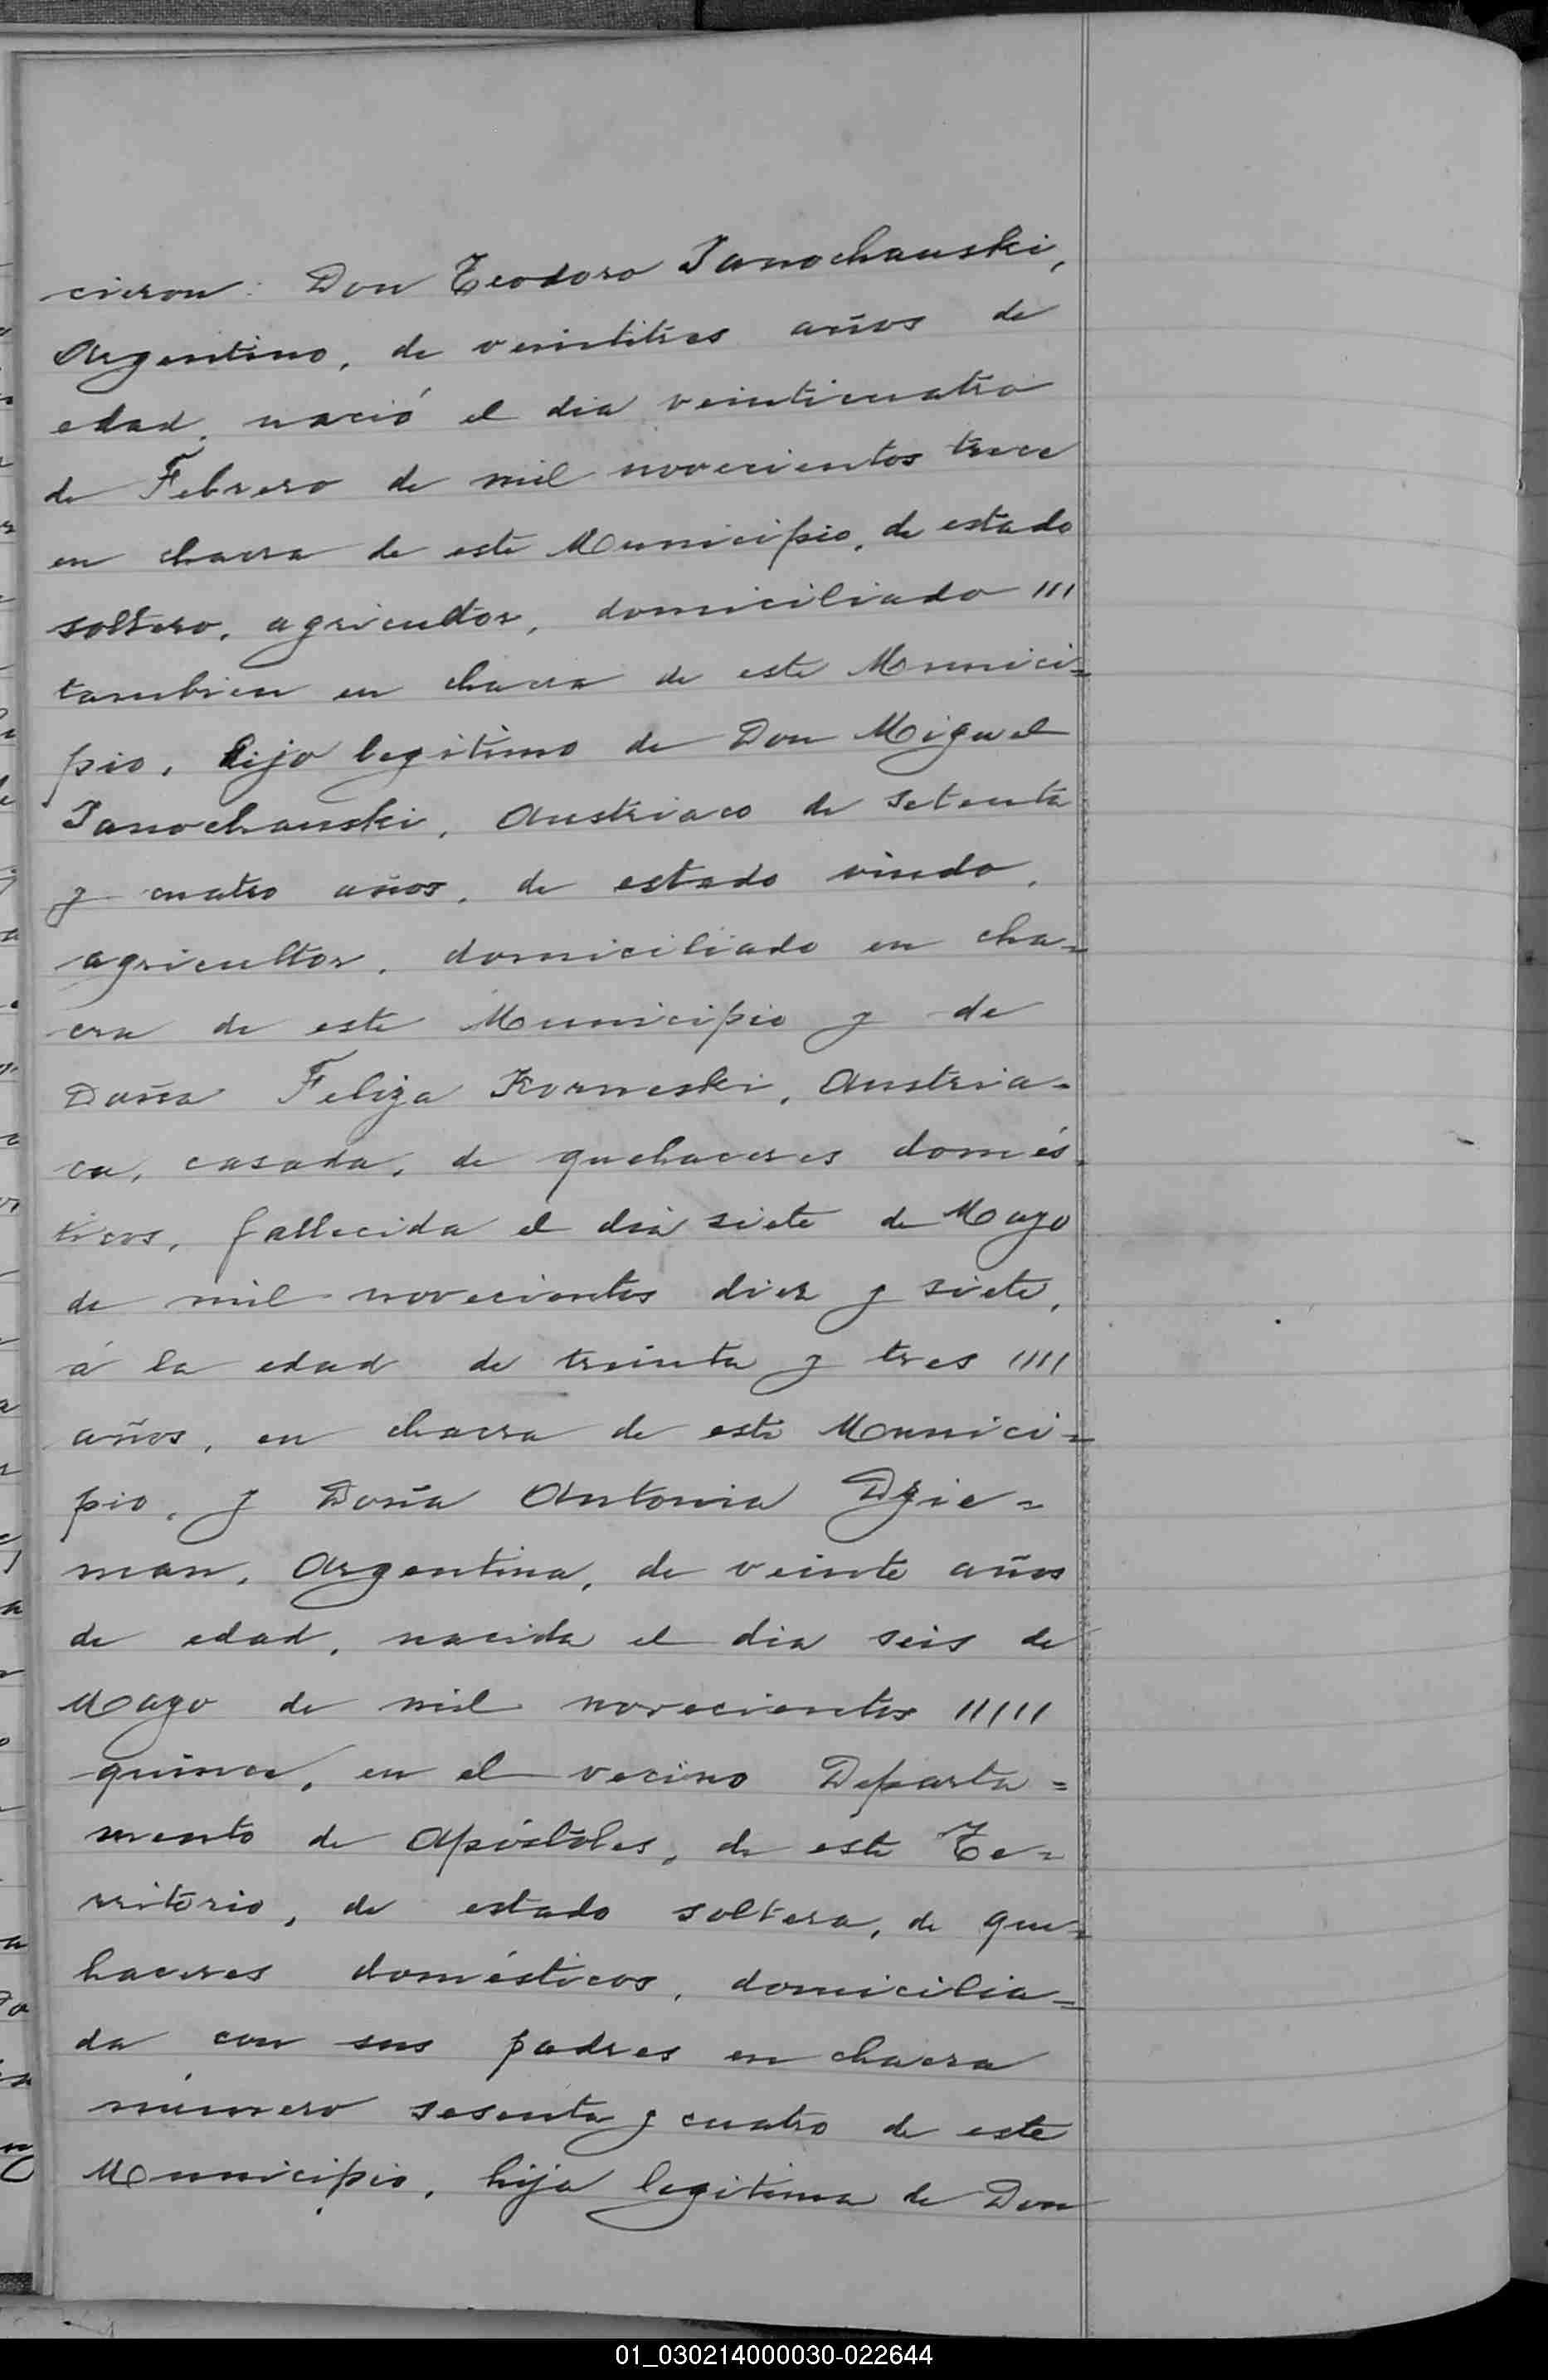 cieron: Don Teodoro Janochanski,
Argentino, de veintitres años de
edad, nació el dia veinticuatro
de Febrero de mil novecientos trece
en chacra de este Municipio, de estado
soltero, agricultor, domiciliado '''
tambien en chacra de este Munici=
pio, hijo legitimo de Don Miguel
Janochanski, Austriaco de setenta
y cuatro años, de estado viudo,
agricultor, domiciliado en cha=
cra de este Municipio y de
Doña Feliza Korneski, Austria-
ca, casada, de quehaceres domés-
ticos, fallecida el dia siete de Mayo
de mil novecientos diez y siete,
á la edad de treinta y tres ''''
años, en chacra de este Munici=
pio, y Doña Antonia Dzie=
man, Argentina, de veinte años
de edad, nacida el dia seis de
Mayo de mil novecientos '''''
quince, en el vecino Departa=
mento de Apóstoles, de este Te=
rritorio, de estado soltera, de que=
haceres domésticos, domicilia=
da con sus padres en chacra
número sesenta y cuatro de este
Municipio, hija legitima de Don
01_030214000030-022644